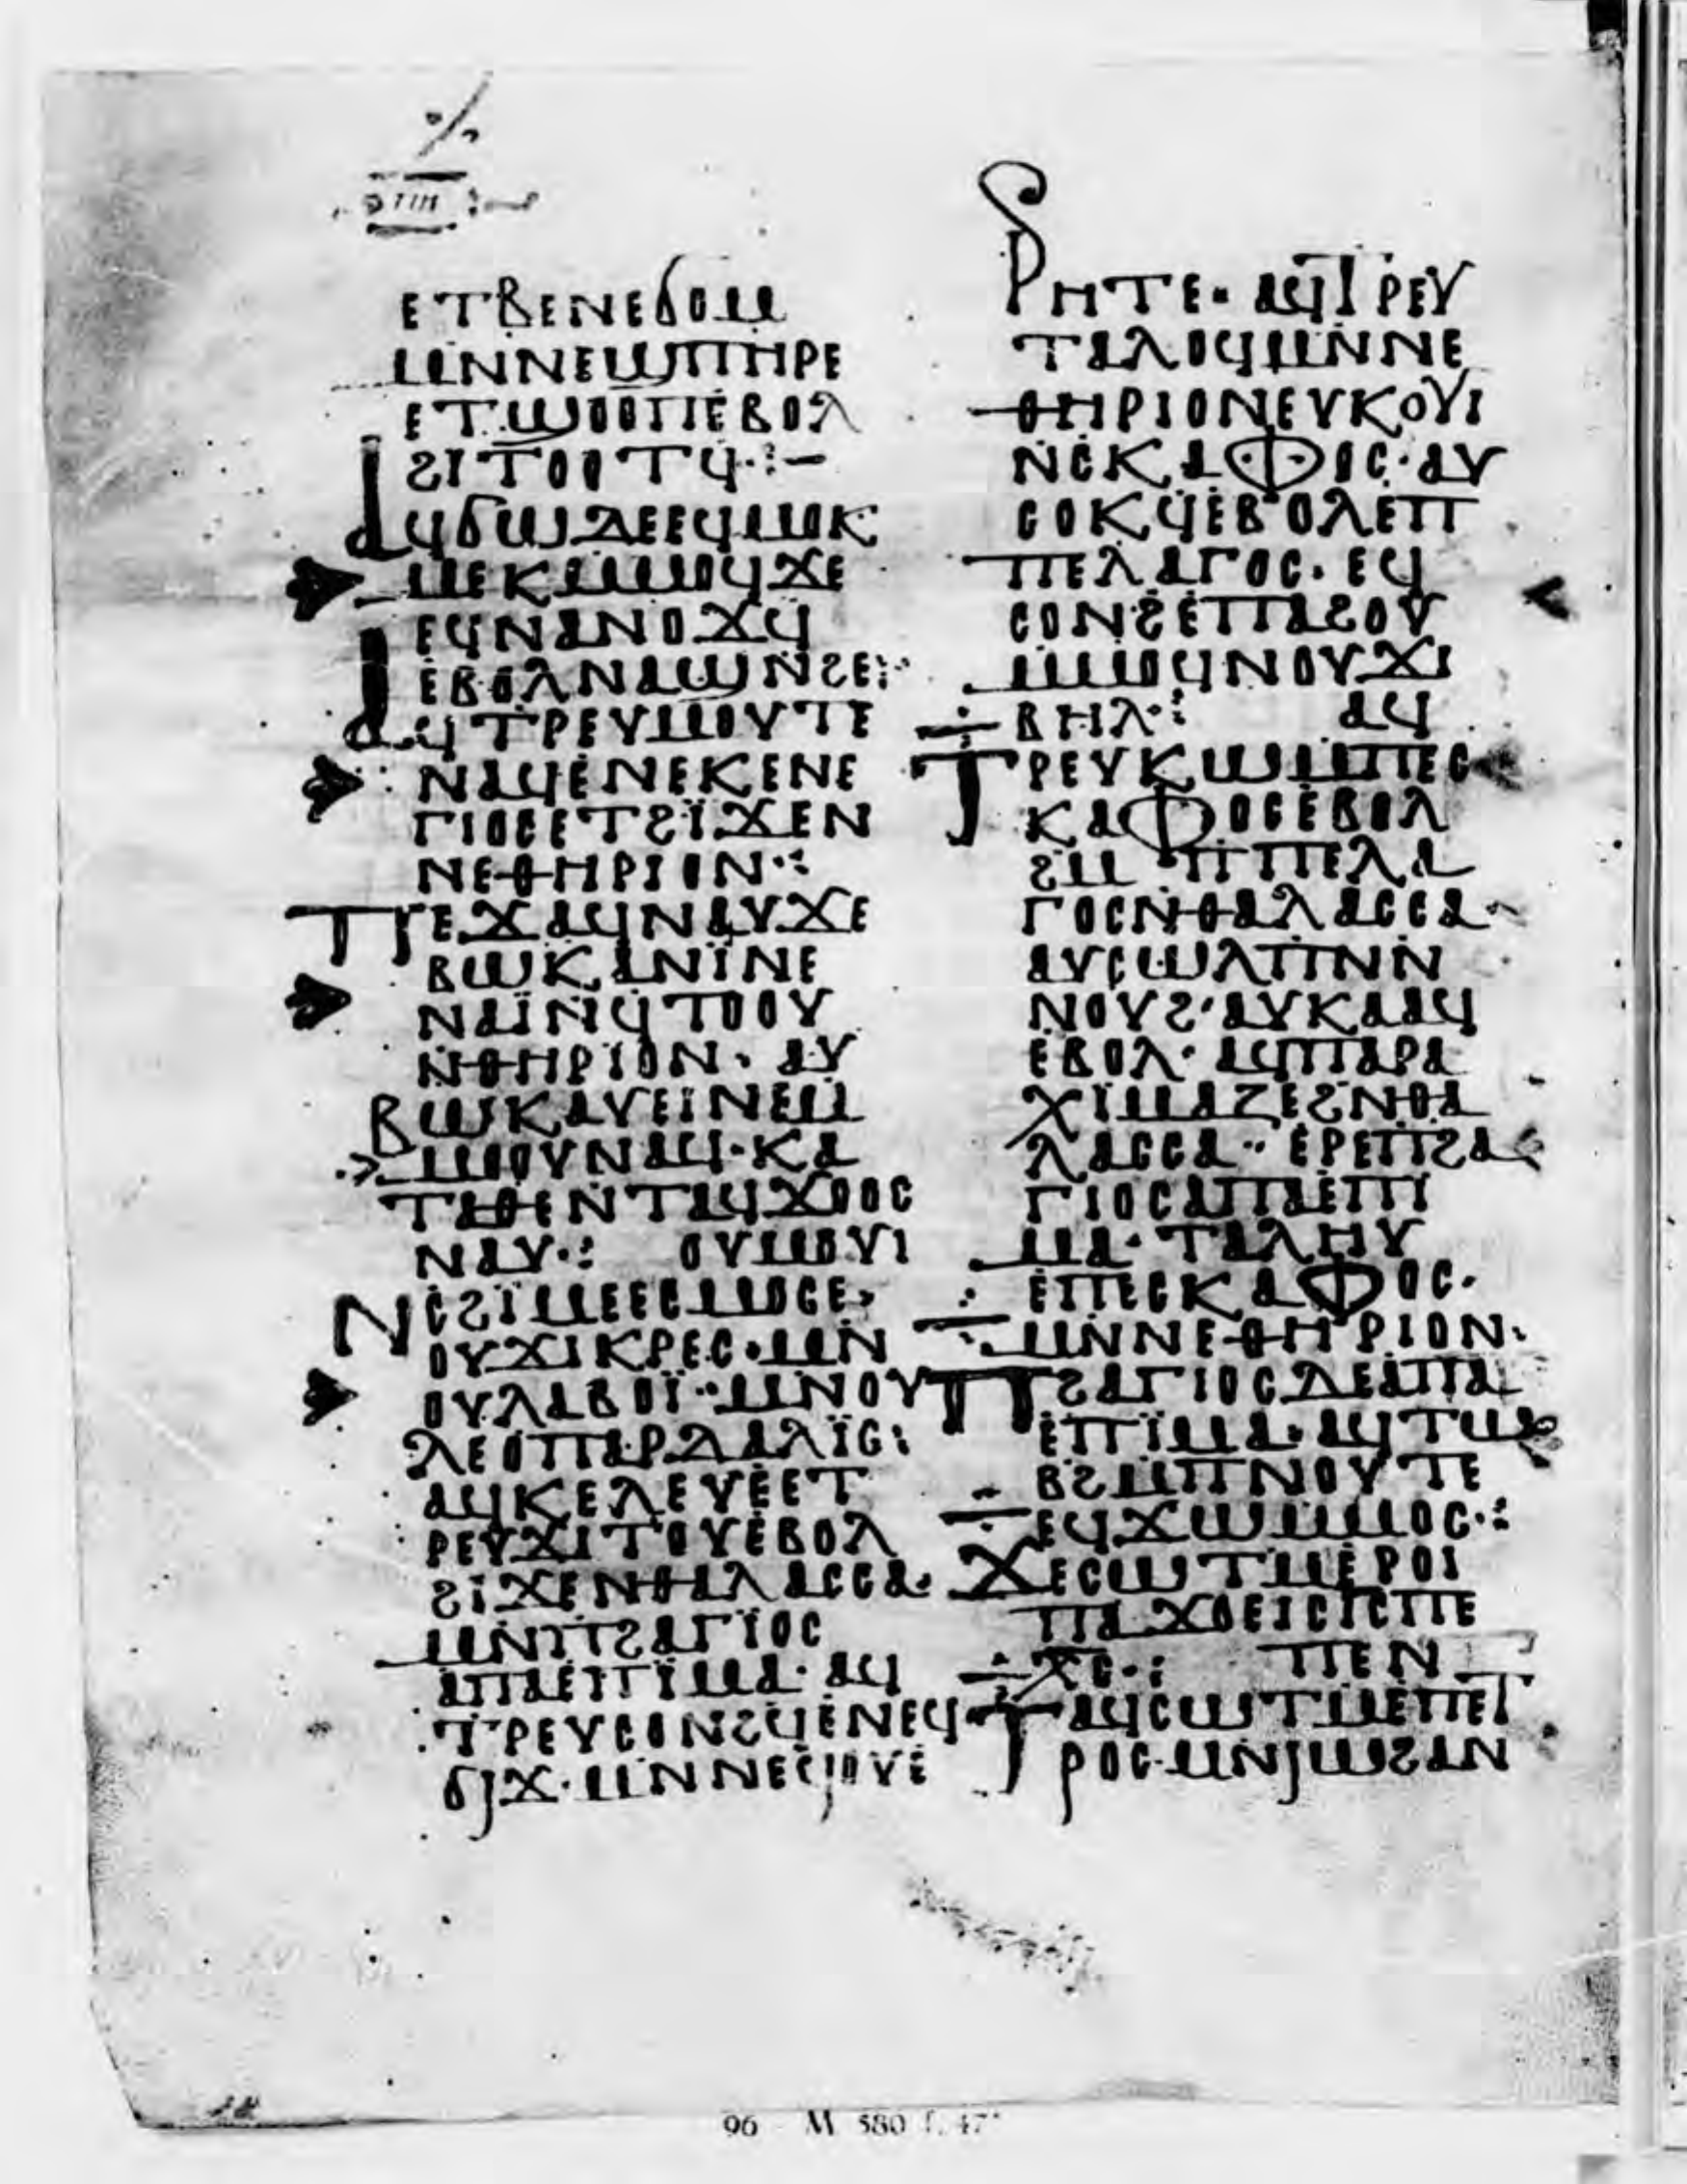 ⲉⲧⲃⲉⲛⲉϭⲟⲙ
ⲙⲛⲛⲉϣⲡⲏⲣⲉ
ⲉⲧϣⲟⲟⲡⲉⲃⲟⲗ
ϩⲓⲧⲟⲟⲧϥ·:–
ⲁϥϭⲱⲇⲉⲉϥⲙⲟⲕ
ⲙⲉⲕⲙⲙⲟϥϫⲉ
ⲉϥⲛⲁⲛⲟϫϥ
ⲉⲃⲟⲗⲛⲁϣⲛϩⲉ:·
ⲁϥⲧⲣⲉⲩⲙⲟⲩⲧⲉ
ⲛⲁϥⲉⲛⲉⲕⲉⲛⲉ
ⲅⲓⲟⲥⲉⲧϩⲓϫⲉⲛ
ⲛⲉⲑⲏⲣⲓⲟⲛ·:
ⲡⲉϫⲁϥⲛⲁⲩϫⲉ
ⲃⲱⲕⲁⲛⲓⲛⲉ
ⲛⲁⲓⲛϥⲧⲟⲟⲩ
ⲛⲑⲏⲣⲓⲟⲛ· ⲁⲩ
ⲃⲱⲕⲁⲩⲉⲓⲛⲉⲙ
ⲙⲟⲟⲩⲛⲁϥ·ⲕⲁ
ⲧⲁⲑⲉⲛⲧⲁϥϫⲟⲟⲥ
ⲛⲁⲩ·: ⲟⲩⲙⲟⲩⲓ
ⲛⲥϩⲓⲙⲉⲉⲥⲙⲟⲥⲉ·
ⲟⲩϫⲓⲕⲣⲉⲥ·ⲙⲛ
ⲟⲩⲗⲁⲃⲟⲓ··ⲙⲛⲟⲩ
ⲗⲉⲟⲡⲁⲣⲇⲁⲗⲓⲥ:
ⲁϥⲕⲉⲗⲉⲩⲉⲉⲧ
ⲣⲉⲩϫⲓⲧⲟⲩⲉⲃⲟⲗ
ϩⲓϫⲉⲛⲑⲁⲗⲁⲥⲥⲁ·
ⲙⲛⲡϩⲁⲅⲓⲟⲥ
ⲁⲡⲁⲉⲡⲓⲙⲁ· ⲁϥ
ⲧⲣⲉⲩⲥⲟⲛϩϥⲉⲛⲉϥ
ϭⲓϫ·ⲙⲛⲛⲉϥⲟⲩⲉ
ⲣⲏⲧⲉ· ⲁϥⲧⲣⲉⲩ
ⲧⲁⲗⲟϥⲙⲛⲛⲉ
ⲑⲏⲣⲓⲟⲛⲉⲩⲕⲟⲩⲓ
ⲛⲥⲕⲁⲫⲟⲥ·ⲁⲩ
ⲥⲟⲕϥⲉⲃⲟⲗⲉⲡ
ⲡⲉⲗⲁⲅⲟⲥ· ⲉϥ
ⲥⲟⲛϩⲉⲡⲁϩⲟⲩ
ⲙⲙⲟϥⲛⲟⲩϫⲓ
ⲃⲏⲗ·: ⲁϥ
ⲧⲣⲉⲩⲕⲱⲙⲡⲉⲥ
ⲕⲁⲫⲟⲥⲉⲃⲟⲗ
ϩⲙ ⲡⲡⲉⲗⲁ
ⲅⲟⲥⲛⲑⲁⲗⲁⲥⲥⲁ
ⲁⲩⲥⲱⲗⲡⲛⲛ
ⲛⲟⲩϩ·ⲁⲩⲕⲁⲁϥ
ⲉⲃⲟⲗ· ⲁϥⲡⲁⲣⲁ
ⲭⲓⲙⲁⲍⲉϩⲛⲑⲁ
ⲗⲁⲥⲥⲁ·· ⲉⲣⲉⲡϩⲁ
ⲅⲓⲟⲥⲁⲡⲁⲉⲡⲓ
ⲙⲁ· ⲧⲁⲗⲏⲩ
ⲉⲡⲉⲥⲕⲁⲫⲟⲥ·
ⲙⲛⲛⲉⲑⲏⲣⲓⲟⲛ·
ⲡϩⲁⲅⲓⲟⲥⲇⲉⲁⲡⲁ
ⲉⲡⲓⲙⲁ· ⲁϥⲧⲱ
ⲃϩⲙⲡⲛⲟⲩⲧⲉ
ⲉϥϫⲱⲙⲙⲟⲥ·:
ϫⲉⲥⲱⲧⲙⲉⲣⲟⲓ
ⲡⲁϫⲟⲉⲓⲥⲓⲥⲡⲉ
ⲭⲥ·: ⲡⲉⲛ
ⲧⲁϥⲥⲱⲧⲙⲉⲡⲉⲧ
ⲣⲟⲥ·ⲙⲛⲓⲱϩⲁⲛ
96 M 580 f. 47